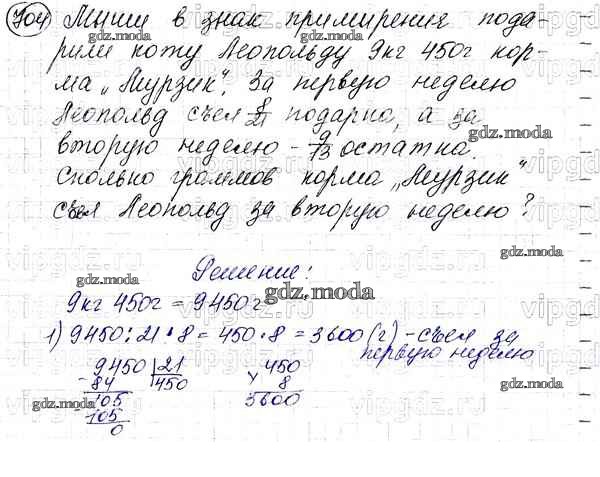 704 Мыши в знак примирения пода-
рили коту Леопольду 9кг 450г кор-
ма „Мурзик". За первую неделю
Леопольд съел 8/21 подарка, а за
вторую неделю - 9/13 остатка.
Сколько граммов корма „Мурзик"
съел Леопольд за вторую неделю?
Решение:
9кг 450г = 9450г
1) 9450 : 21 · 8 = 450 · 8 = 3600 (г) - съел за
первую неделю
9450 | 21
- 84 | 450
105
105
0
450
× 8
3600
gdz.moda
vipgdz.ru